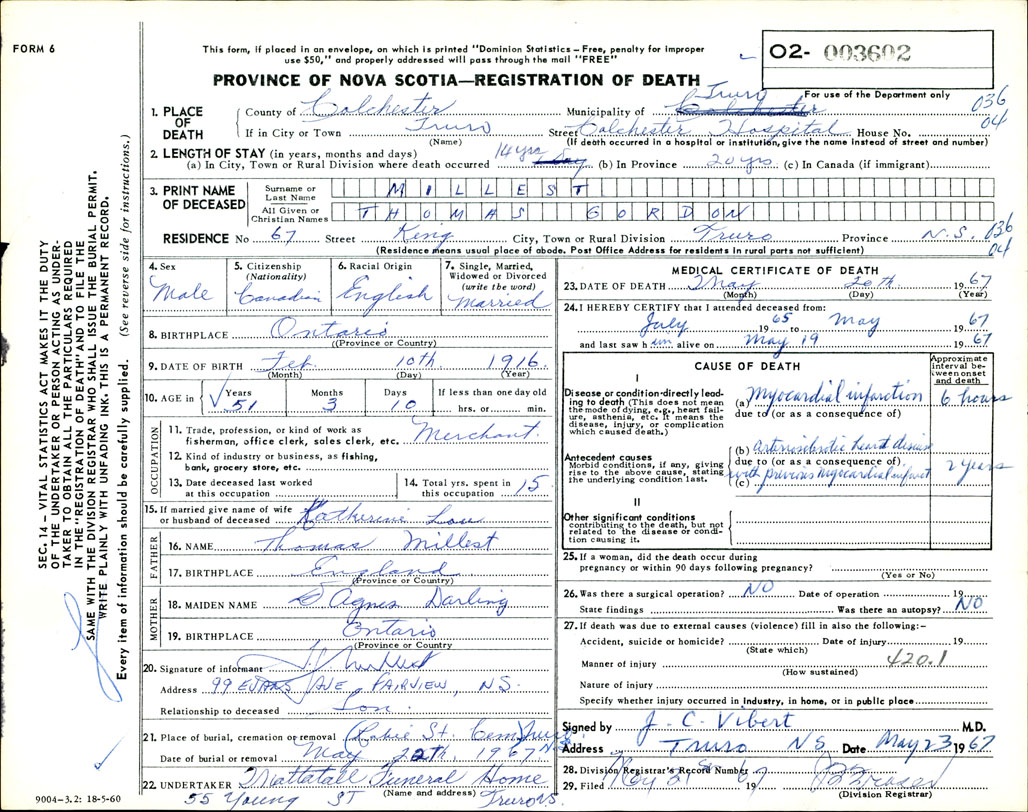 FORM 6
This form, if placed in an envelope, on which is printed "Dominion Statistics – Free, penalty for improper
use $50," and properly addressed will pass through the mail "FREE"
O2- 003602
PROVINCE OF NOVA SCOTIA—REGISTRATION OF DEATH
For use of the Department only
036
04
1. PLACE OF DEATH
County of Colchester Municipality of Truro Colchester
If in City or Town Truro Street Colchester Hospital House No.
(Name) (If death occurred in a hospital or institution, give the name instead of street and number)
2. LENGTH OF STAY (in years, months and days)
(a) In City, Town or Rural Division where death occurred 14 yrs (b) In Province 20 yrs (c) In Canada (if immigrant)
3. PRINT NAME OF DECEASED
Surname or Last Name MILLEST
All Given or Christian Names THOMAS GORDON
RESIDENCE No 67 Street King City, Town or Rural Division Truro Province N.S. 036
04
(Residence means usual place of abode. Post Office Address for residents in rural parts not sufficient)
4. Sex
Male
5. Citizenship
(Nationality)
Canadian
6. Racial Origin
English
7. Single, Married,
Widowed or Divorced
(write the word)
Married
8. BIRTHPLACE Ontario
(Province or Country)
9. DATE OF BIRTH Feb. 10th 1916
(Month) (Day) (Year)
10. AGE in Years Months Days If less than one day old
51 3 10 hrs. or min.
OCCUPATION
11. Trade, profession, or kind of work as
fisherman, office clerk, sales clerk, etc. Merchant.
12. Kind of industry or business, as fishing,
bank, grocery store, etc.
13. Date deceased last worked
at this occupation
14. Total yrs. spent in
this occupation 15
15. If married give name of wife
or husband of deceased Katherine Lou
FATHER
16. NAME Thomas Millest
17. BIRTHPLACE England
(Province or Country)
MOTHER
18. MAIDEN NAME Agnes Darling
19. BIRTHPLACE Ontario
(Province or Country)
20. Signature of informant Millest
Address 99 EVANS AVE, FAIRVIEW, NS.
Relationship to deceased Son.
21. Place of burial, cremation or removal (Robie St. Cem) Truro N.S.
Date of burial or removal May 22th, 1967
22. UNDERTAKER Mattatall Funeral Home
(Name and address)
55 Young ST Truro NS.
MEDICAL CERTIFICATE OF DEATH
23. DATE OF DEATH May 20th 1967
(Month) (Day) (Year)
24. I HEREBY CERTIFY that I attended deceased from:
July 1965 to May 1967
and last saw him alive on May 19 1967
CAUSE OF DEATH
Approximate interval between onset and death
I
Disease or condition directly leading to death (This does not mean
the mode of dying, e.g., heart failure, asthenia, etc. It means the
disease, injury, or complication
which caused death.)
(a) Myocardial infarction 6 hours
due to (or as a consequence of)
Antecedent causes
Morbid conditions, if any, giving
rise to the above cause, stating
the underlying condition last.
(b) arteriosclerotic heart disease
due to (or as a consequence of)
(c) with previous myocardial infarct 2 years
II
Other significant conditions
contributing to the death, but not
related to the disease or condition causing it.
25. If a woman, did the death occur during
pregnancy or within 90 days following pregnancy?
(Yes or No)
26. Was there a surgical operation? NO Date of operation 19
State findings Was there an autopsy? NO
27. If death was due to external causes (violence) fill in also the following:–
Accident, suicide or homicide? Date of injury 19
(State which)
Manner of injury 420.1
(How sustained)
Nature of injury
Specify whether injury occurred in industry, in home, or in public place
Signed by J. C. Vibert M.D.
Address Truro NS Date May 23 1967
28. Division Registrar's Record Number
29. Filed 1967
(Division Registrar)
SEC. 14 – VITAL STATISTICS ACT MAKES IT THE DUTY
OF THE UNDERTAKER OR PERSON ACTING AS UNDERTAKER TO OBTAIN ALL THE PARTICULARS REQUIRED
IN THE "REGISTRATION OF DEATH" AND TO FILE THE
SAME WITH THE DIVISION REGISTRAR WHO SHALL ISSUE THE BURIAL PERMIT.
WRITE PLAINLY WITH UNFADING INK. THIS IS A PERMANENT RECORD.
Every item of information should be carefully supplied. (See reverse side for instructions.)
9004-3.2: 18-5-60